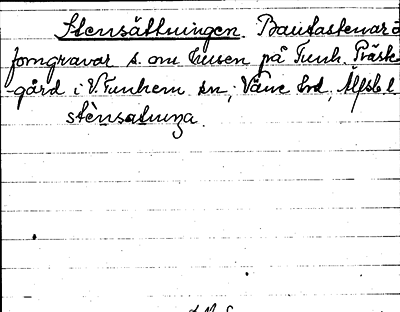 Stensättningen. Bautastenar o
forngravar s. om Ensen på Tunh. Präst-
gård i V. Tunhem sn, Väne hd, Älfsb. l
stènsatninga.